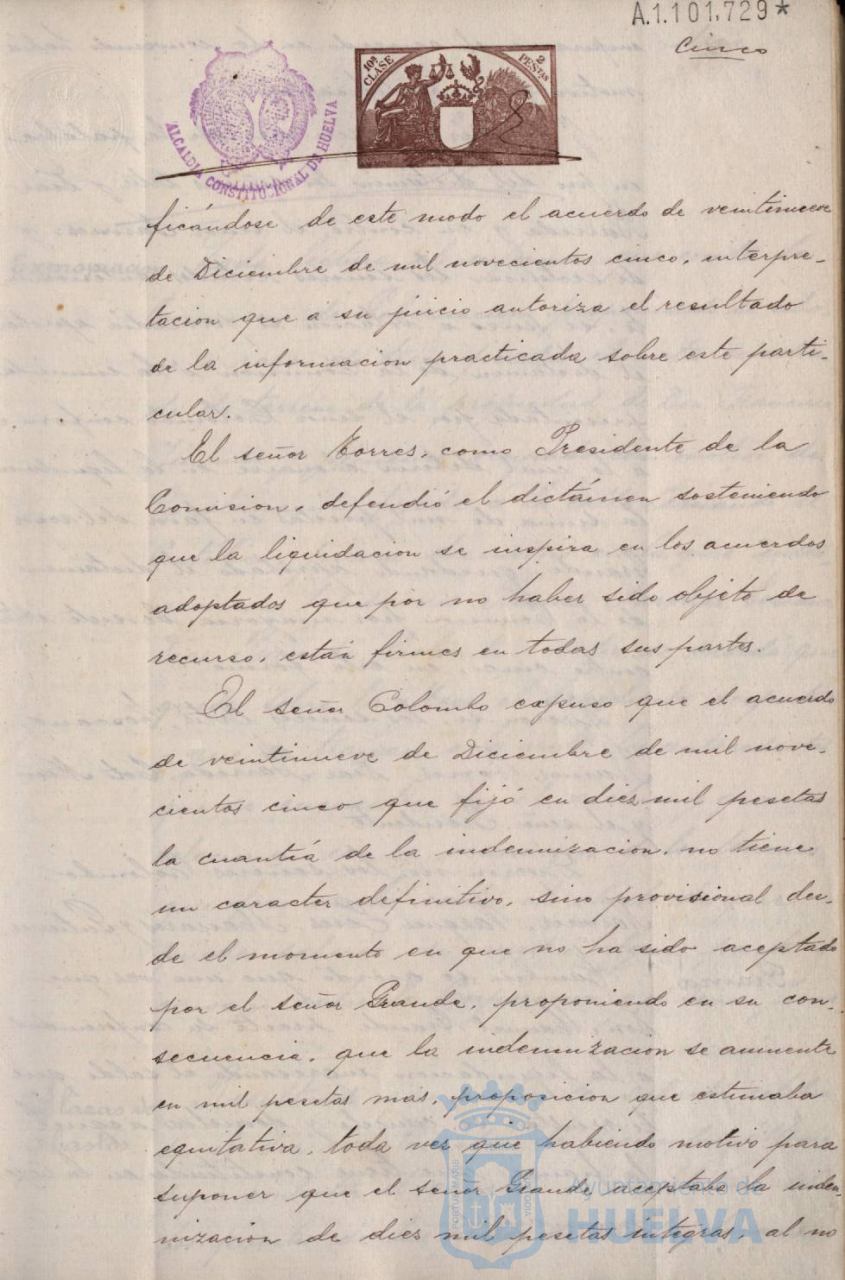 A.1.101.729*
Cinco
10ª CLASE
2 PESETAS
ALCALDIA CONSTITUCIONAL DE HUELVA
ficándose de este modo el acuerdo de veintinueve
de Diciembre de mil novecientos cinco, interpre-
tacion que a su juicio autoriza el resultado
de la informacion practicada sobre este parti-
cular.
El señor Torres, como Presidente de la
Comision, defendió el dictámen sosteniendo
que la liquidacion se inspira en los acuerdos
adoptados que por no haber sido objeto de
recurso, están firmes en todas sus partes.
El señor Colombo expuso que el acuerdo
de veintinueve de Diciembre de mil nove-
cientos cinco que fijó en diez mil pesetas
la cuantía de la indemnizacion, no tiene
un caracter definitivo, sino provisional des-
de el momento en que no ha sido aceptado
por el señor Grande, proponiendo en su con-
secuencia, que la indemnizacion se aumente
en mil pesetas mas, proposicion que estimaba
equitativa, toda vez que habiendo motivo para
suponer que el señor Grande aceptaba la indem-
nizacion de diez mil pesetas integras, al no
Ayuntamiento de
HUELVA